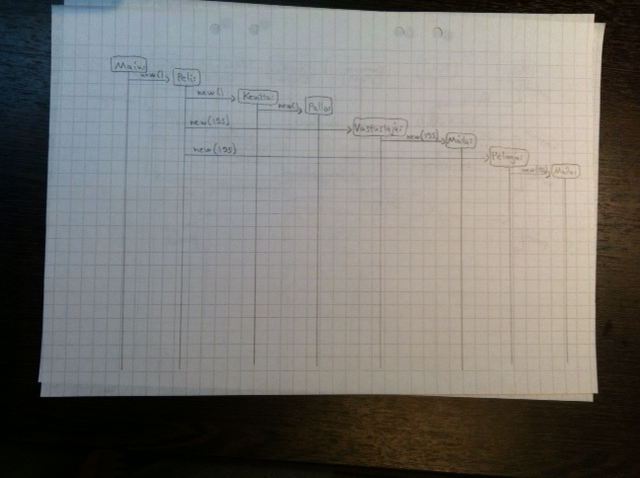 Main:
new()
Peli:
new()
Kentta:
new()
Pallo:
new(195)
Vastustaja:
new(195)
Maila:
new(195)
Pelaaja:
Maila: